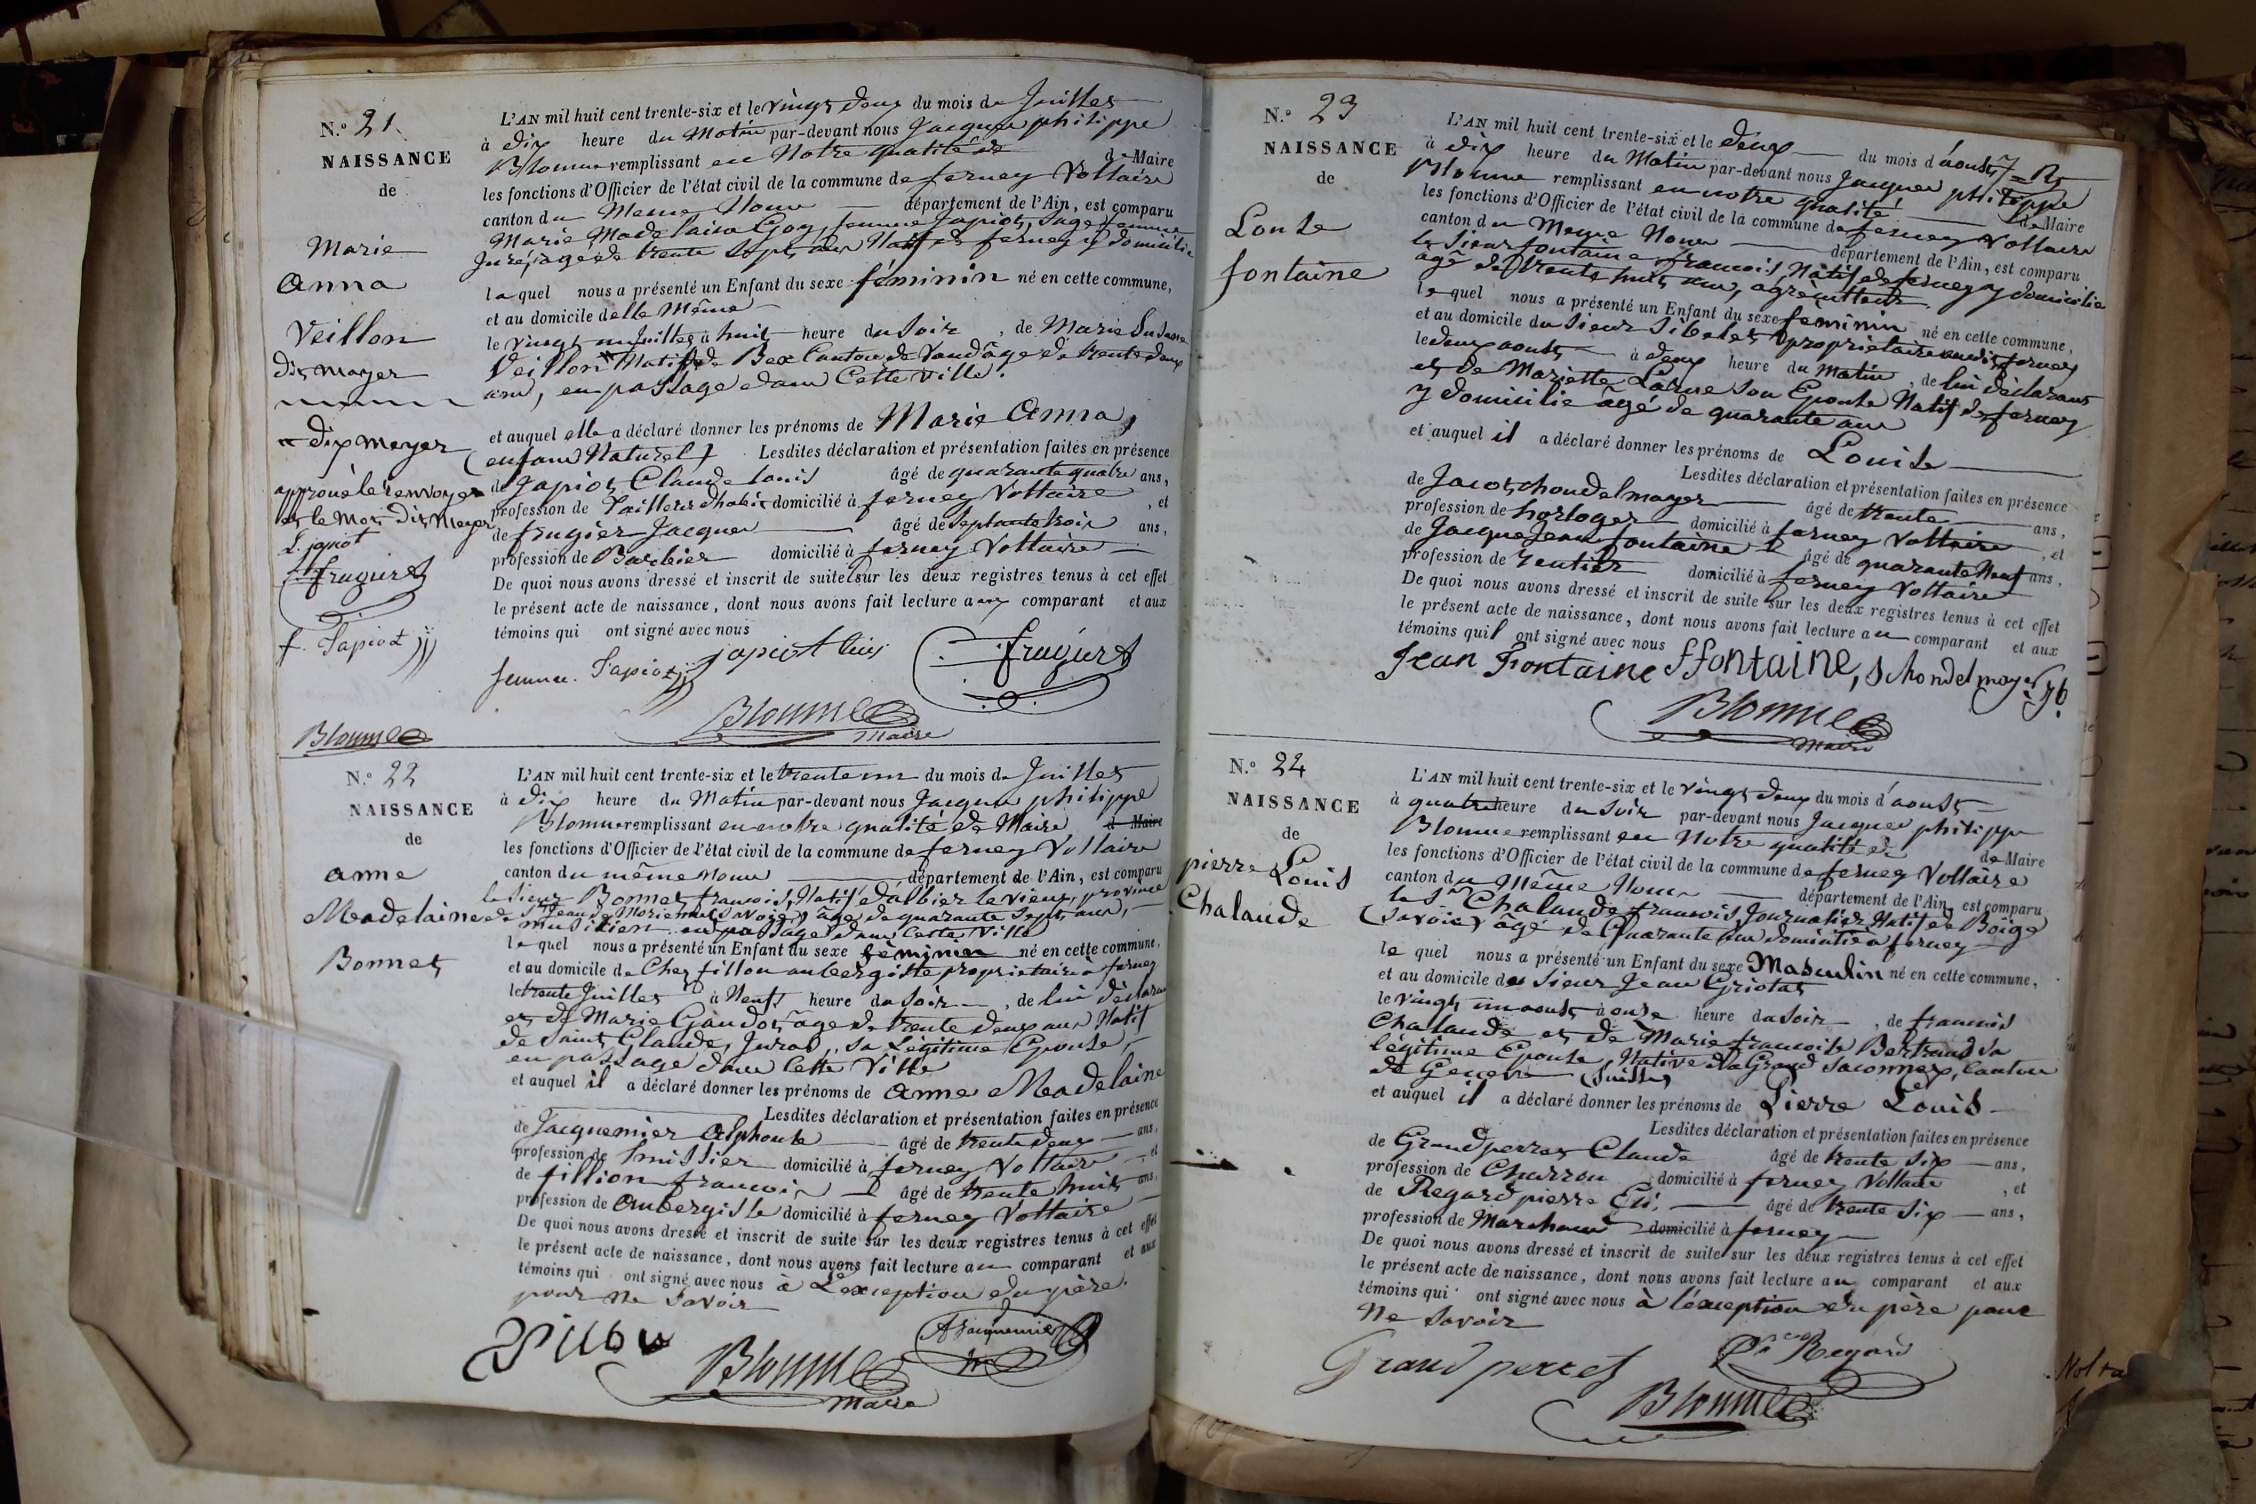 N.º 21.
NAISSANCE
de
Marie
Anna
Veillon
dit mayer
dix mayer
approuvé le renvoyer
et le mot dit Mayer
L. japiot
frugier
f. Japiot
Blomme
L'AN mil huit cent trente-six et le vingt deux du mois de Juillet
à dix heure du Matin par-devant nous Jacques philippe
Blomme remplissant en Notre qualité de de Maire
les fonctions d'Officier de l'état civil de la commune de ferney Voltaire
canton du Meme Nom département de l'Ain, est comparu
Marie Madelaine Goy, femme Japiot, Sage femme
Juré, agé de trente Sept, ans Natif de ferney y domicilié
laquel nous a présenté un Enfant du sexe féminin né en cette commune,
et au domicile delle Même
le vingt un Juillet à huit heure du Soir, de Marie Susanne
Veillon Natif de Bex Canton de Vaud âgé de trente deux
ans, en passage dans Cette ville.
et auquel elle a déclaré donner les prénoms de Marie Anna,
(enfant Naturel) Lesdites déclaration et présentation faites en présence
de Japiot Claude Louis âgé de quarante quatre ans,
profession de Tailleur d'habit domicilié à ferney Voltaire, et
de frugier Jacques âgé de Septante trois ans,
profession de Barbier domicilié à ferney Voltaire
De quoi nous avons dressé et inscrit de suite sur les deux registres tenus à cet effet
le présent acte de naissance, dont nous avons fait lecture aux comparant et aux
témoins qui ont signé avec nous
femme Japiot japiot Luis frugier
Blomme
Maire
N.º 22
NAISSANCE
de
anne
Madelaine
Bonnet
L'AN mil huit cent trente-six et le trente un du mois de Juillet
à dix heure du Matin par-devant nous Jacques philippe
Blomme remplissant en notre qualité de Maire de Maire
les fonctions d'Officier de l'état civil de la commune de ferney Voltaire
canton du même nom département de l'Ain, est comparu
le Sieur Bonnet francois, Natif d'albier le vieux, province
de St Jean de Morienne (Savoie) âgé de quarante Sept ans,
musicien en passage dans cette ville
lequel nous a présenté un Enfant du sexe féminin né en cette commune,
et au domicile de Chez fillon aubergiste, propriétaire a ferney
le trente Juillet à Neuf heure du Soir, de lui déclarant
et de Marie Gaudot âgé de trente deux ans Natif
de Saint Claude, Jura, sa Légitime Epouse,
en passage dans Cette Ville
et auquel il a déclaré donner les prénoms de anne Madelaine
Lesdites déclaration et présentation faites en présence
de Jacquemier Alphonse âgé de trente deux ans,
profession de huissier domicilié à ferney Voltaire, et
de fillion francois âgé de trente huit ans,
profession de Aubergiste domicilié à ferney Voltaire
De quoi nous avons dressé et inscrit de suite sur les deux registres tenus à cet effet
le présent acte de naissance, dont nous avons fait lecture au comparant et aux
témoins qui ont signé avec nous à L'exception du père.
pour ne Savoir
A Jacquemier
Blomme
Maire
N.º 23
NAISSANCE
de
Louise
fontaine
L'AN mil huit cent trente-six et le deux du mois d'aoust
à dix heure du Matin par-devant nous Jacques philippe
Blomme remplissant en notre qualité de Maire
les fonctions d'Officier de l'état civil de la commune de ferney Voltaire
canton du Meme Nom département de l'Ain, est comparu
le Sieur fontaine francois, Natif de ferney y domicilié
âgé de trente huit ans, agriculteur
lequel nous a présenté un Enfant du sexe feminin né en cette commune,
et au domicile du Sieur Sibelet propriétaire audit ferney
le deux aoust à deux heure du matin, de lui déclarant
et de Mariette Larue Son Epouse Natif de ferney
y domicilié âgé de quarante ans
et auquel il a déclaré donner les prénoms de Louise
Lesdites déclaration et présentation faites en présence
de Jacot choudelmayer âgé de trente ans,
profession de horloger domicilié à ferney Voltaire, et
de Jacque Jean fontaine âgé de quarante Neuf ans,
profession de Rentier domicilié à ferney Voltaire
De quoi nous avons dressé et inscrit de suite sur les deux registres tenus à cet effet
le présent acte de naissance, dont nous avons fait lecture au comparant et aux
témoins quil ont signé avec nous
Jean Fontaine ffontaine, schondelmayer
Blomme
Maire
N.º 24
NAISSANCE
de
pierre Louis
Chalande
L'AN mil huit cent trente-six et le vingt deux du mois d'aoust
à quatre heure du soir par-devant nous Jacques philippe
Blomme remplissant en Notre qualité de de Maire
les fonctions d'Officier de l'état civil de la commune de ferney Voltaire
canton du Même Nom département de l'Ain, est comparu
le Sr Chalande francois, Journalier Natif de Boïge
(Savoie) âgé de Quarante ans domicilié a ferney
le quel nous a présenté un Enfant du sexe Masculin né en cette commune,
et au domicile du Sieur Jean Griotat
le vingt un aoust à onze heure du Soir, de francois
Chalande et de Marie francoise Bertrand sa
légitime Epouse, Native du Grand Saconnex, Canton
de Geneve (Suisse)
et auquel il a déclaré donner les prénoms de Pierre Louis
Lesdites déclaration et présentation faites en présence
de Grandperret Claude âgé de trente Six ans,
profession de Charron domicilié à ferney Voltaire, et
de Regard pierre Eli, âgé de trente Six ans,
profession de Marchand domicilié à ferney
De quoi nous avons dressé et inscrit de suite sur les deux registres tenus à cet effet
le présent acte de naissance, dont nous avons fait lecture au comparant et aux
témoins qui ont signé avec nous à l'exception du père pour
Ne Savoir
Grand perret Regard
Blomme